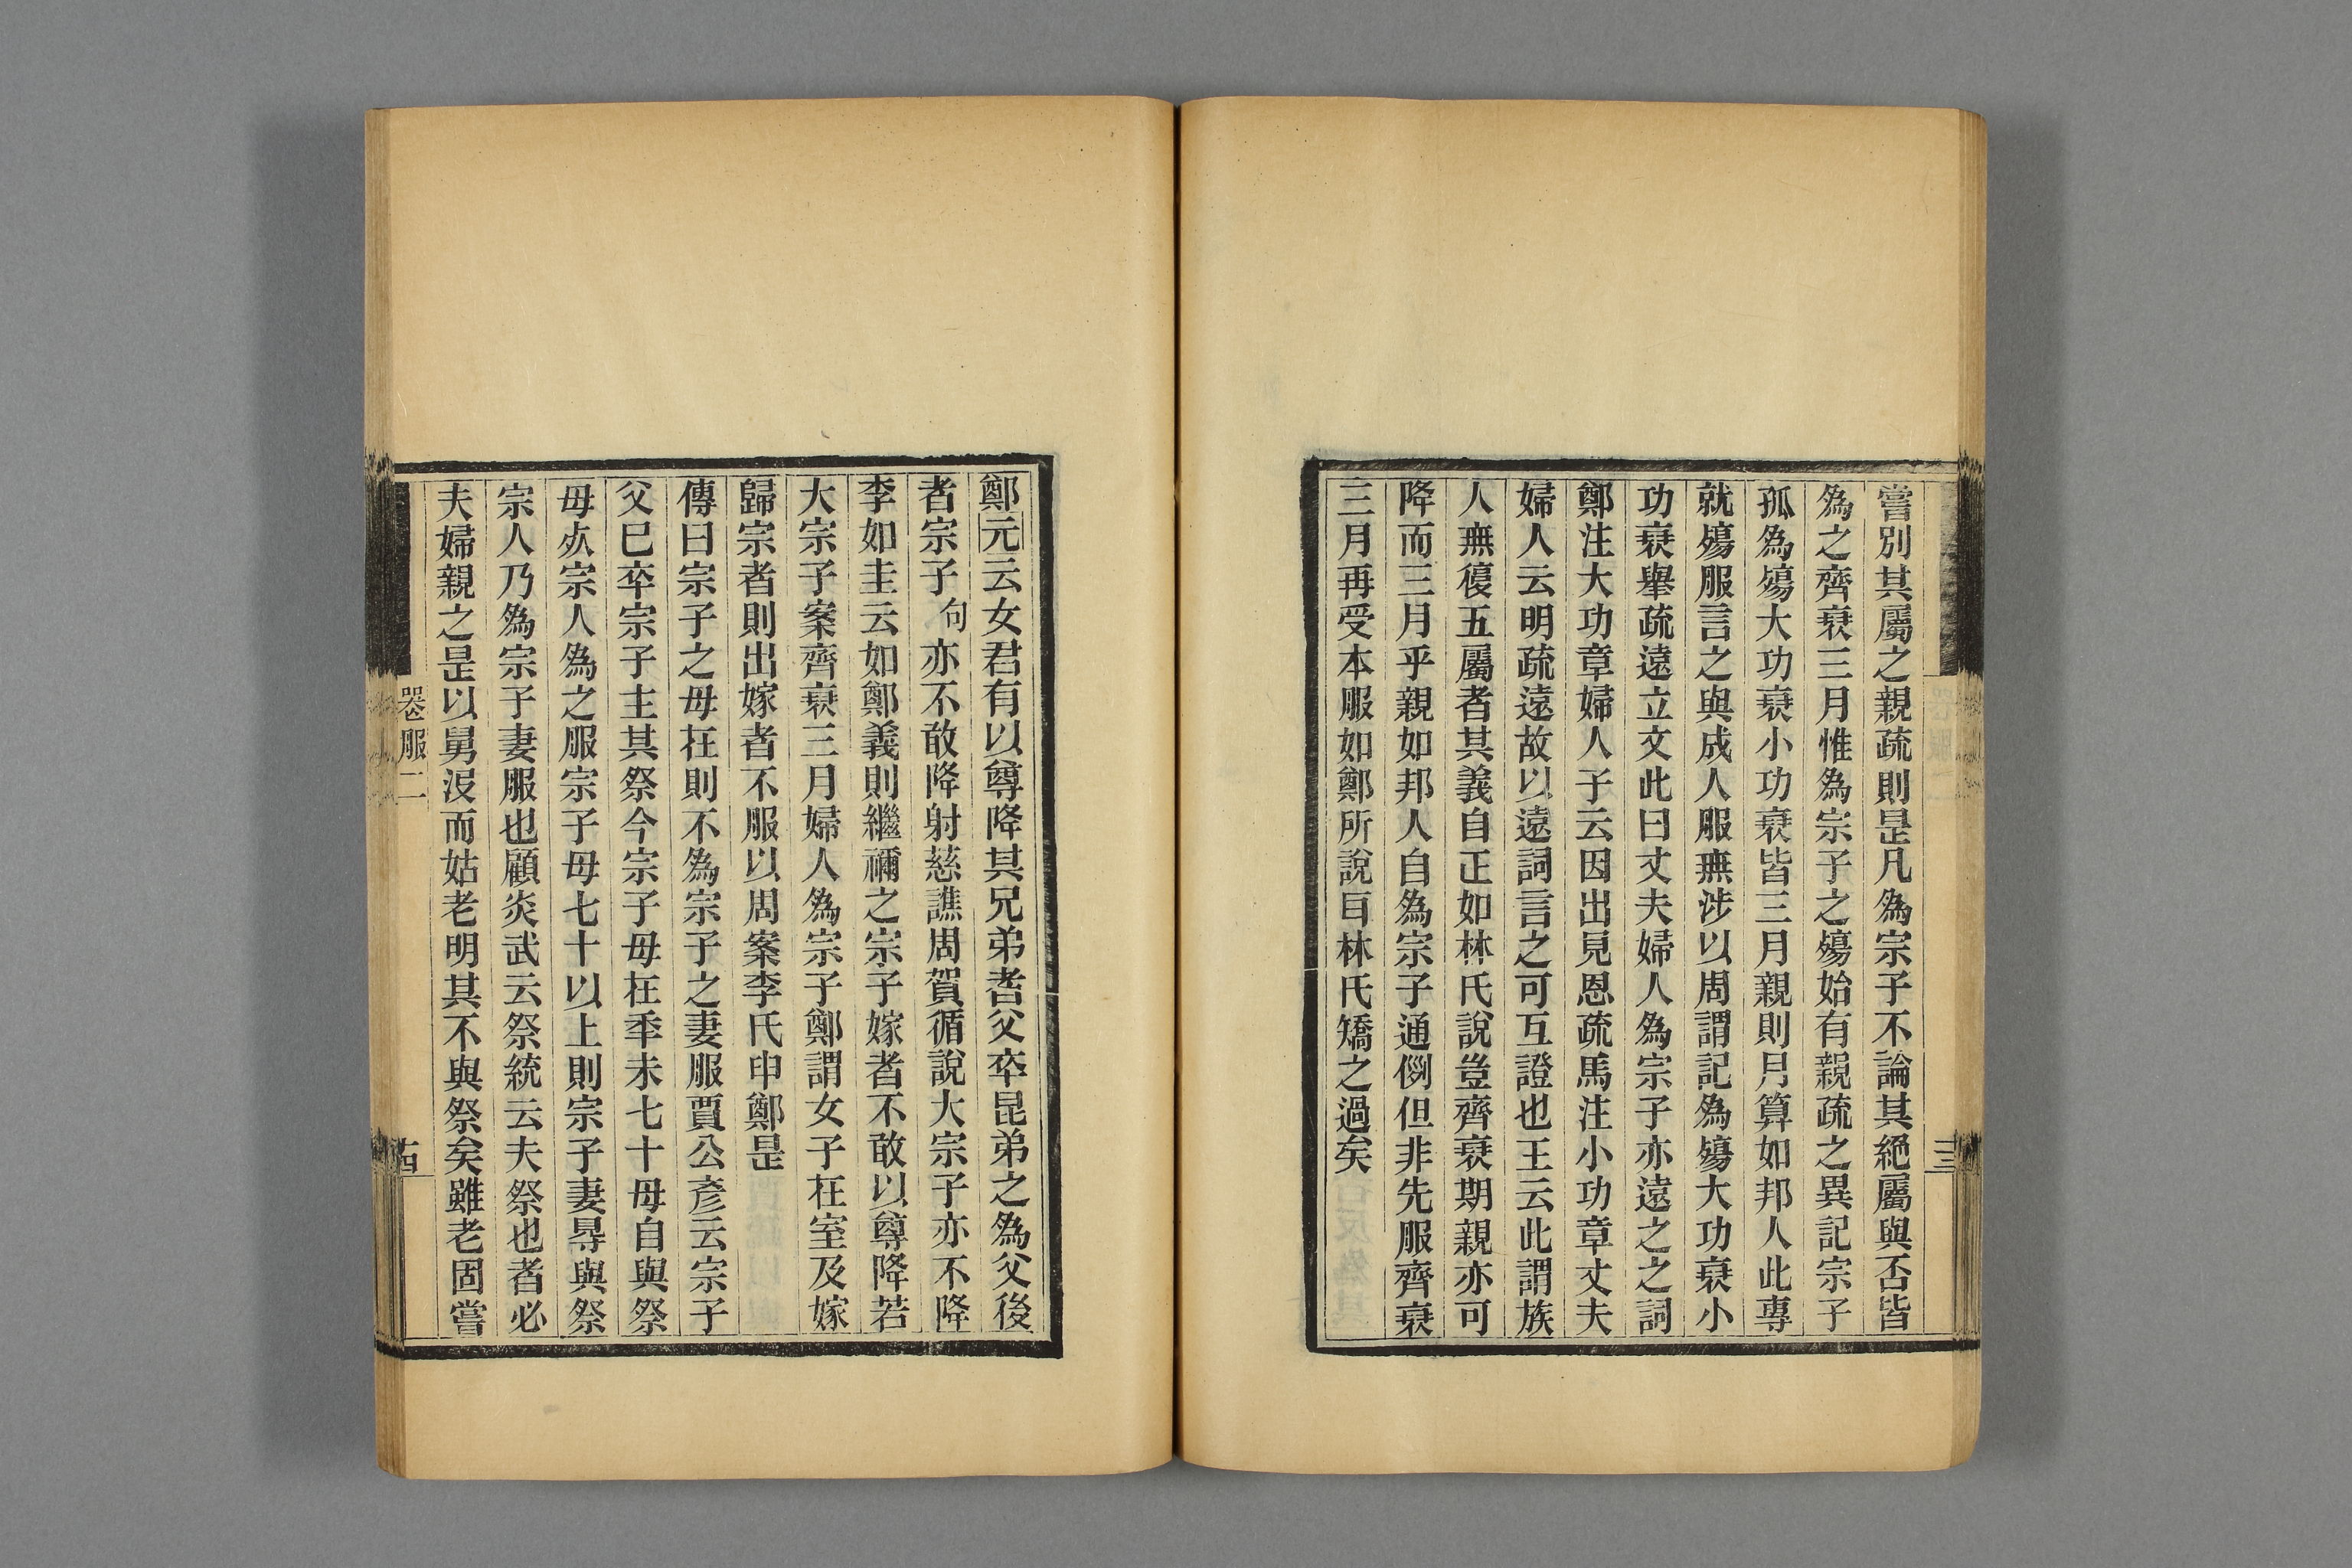 嘗別其屬之親疏則是凡爲宗子不論其絕屬與否皆
爲之齊衰三月惟爲宗子之殤始有親疏之異記宗子
孤爲殤大功衰小功衰皆三月親則月算如邦人此專
就殤服言之與成人服無涉以周謂記爲殤大功衰小
功衰舉疏遠立文此曰丈夫婦人爲宗子亦遠之之詞
鄭注大功章婦人子云因出見恩疏馬注小功章丈夫
婦人云明疏遠故以遠詞言之可互證也王云此謂族
人無復五屬者其義自正如林氏說豈齊衰期親亦可
降而三月乎親如邦人自爲宗子通例但非先服齊衰
三月再受本服如鄭所說㠯林氏矯之過矣
十三
鄭元云女君有以尊降其兄弟者父卒昆弟之爲父後
者宗子句亦不敢降射慈譙周賀循說大宗子亦不降
李如圭云如鄭義則繼禰之宗子嫁者不敢以尊降若
大宗子案齊衰三月婦人爲宗子鄭謂女子在室及嫁
歸宗者則出嫁者不服以周案李氏申鄭是
傳曰宗子之母在則不爲宗子之妻服賈公彥云宗子
父已卒宗子主其祭今宗子母在年未七十母自與祭
母死宗人爲之服宗子母七十以上則宗子妻得與祭
宗人乃爲宗子妻服也顧炎武云祭統云夫祭也者必
夫婦親之是以舅沒而姑老明其不與祭矣雖老固嘗
喪服二
十四